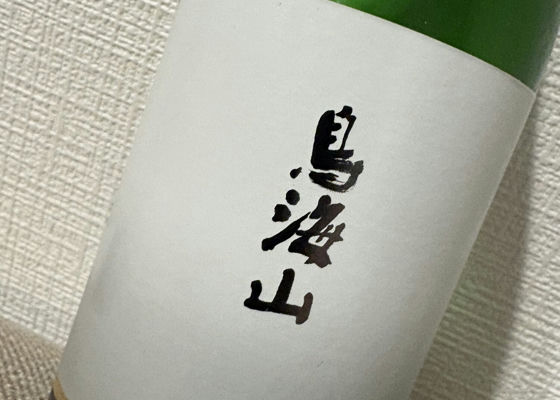 鳥海山